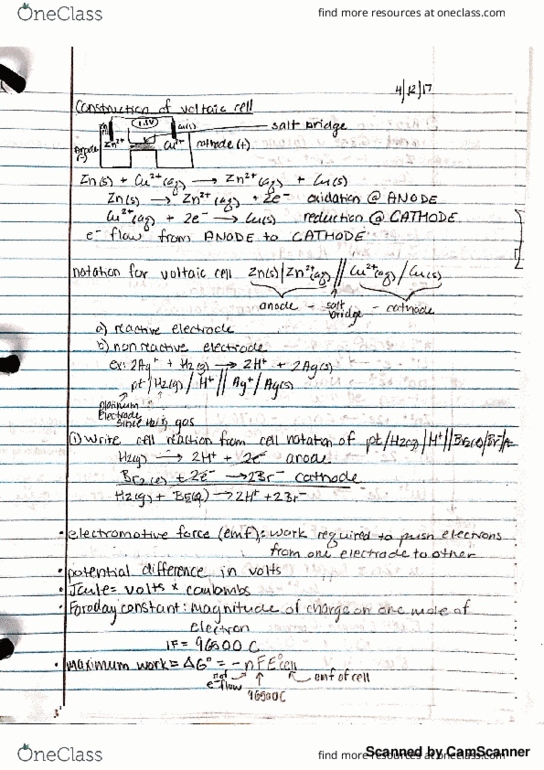 OneClass
find more resources at oneclass.com
4/12/17
Construction of voltaic cell
1.5V
salt bridge
Zn²⁺
Cu²⁺
cathode (+)
Anode (-)
Zn(s) + Cu²⁺(aq) → Zn²⁺(aq) + Cu(s)
Zn(s) → Zn²⁺(aq) + 2e⁻ oxidation @ ANODE
Cu²⁺(aq) + 2e⁻ → Cu(s) reduction @ CATHODE
e⁻ flow from ANODE to CATHODE
notation for voltaic cell Zn(s)|Zn²⁺(aq)//Cu²⁺(aq)/Cu(s)
anode - salt bridge - cathode
a) reactive electrode
b) nonreactive electrode
ex: 2Ag⁺ + H2(g) → 2H⁺ + 2Ag(s)
pt/H2(g)/H⁺//Ag⁺/Ag(s)
platinum
electrode
since H2 is gas
① Write cell reaction from cell notation of pt/H2(g)/H⁺//Br2(l)/Br⁻/
H2(g) → 2H⁺ + 2e⁻ anode
Br2(l) + 2e⁻ → 2Br⁻ cathode
H2(g) + Br2(l) → 2H⁺ + 2Br⁻
• electromotive force (emf): work required to push electrons
from one electrode to other
• potential difference in volts
• Joule = volts × coulombs
• Faraday constant: magnitude of charge on one mole of
electron
1F = 96500 C
• Maximum work = ΔG° = -nFE°cell
e⁻ flow
emf of cell
96500C
OneClass
find more resources at oneclass.com
Scanned by CamScanner